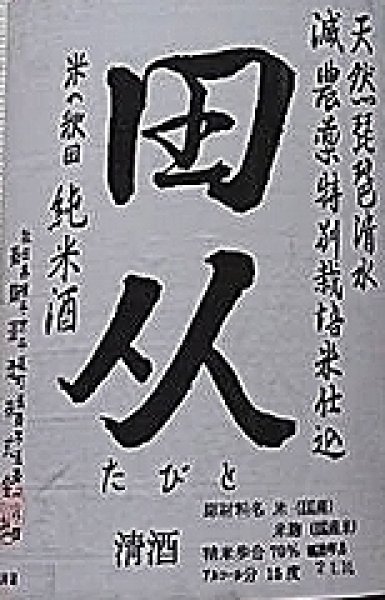 天然琵琶清水
減農薬特別栽培米仕込
田从
たびと
米の秋田
純米酒
清酒
原材料名 米(国産)
米麹(国産米)
精米歩合70%
アルコール分 15度